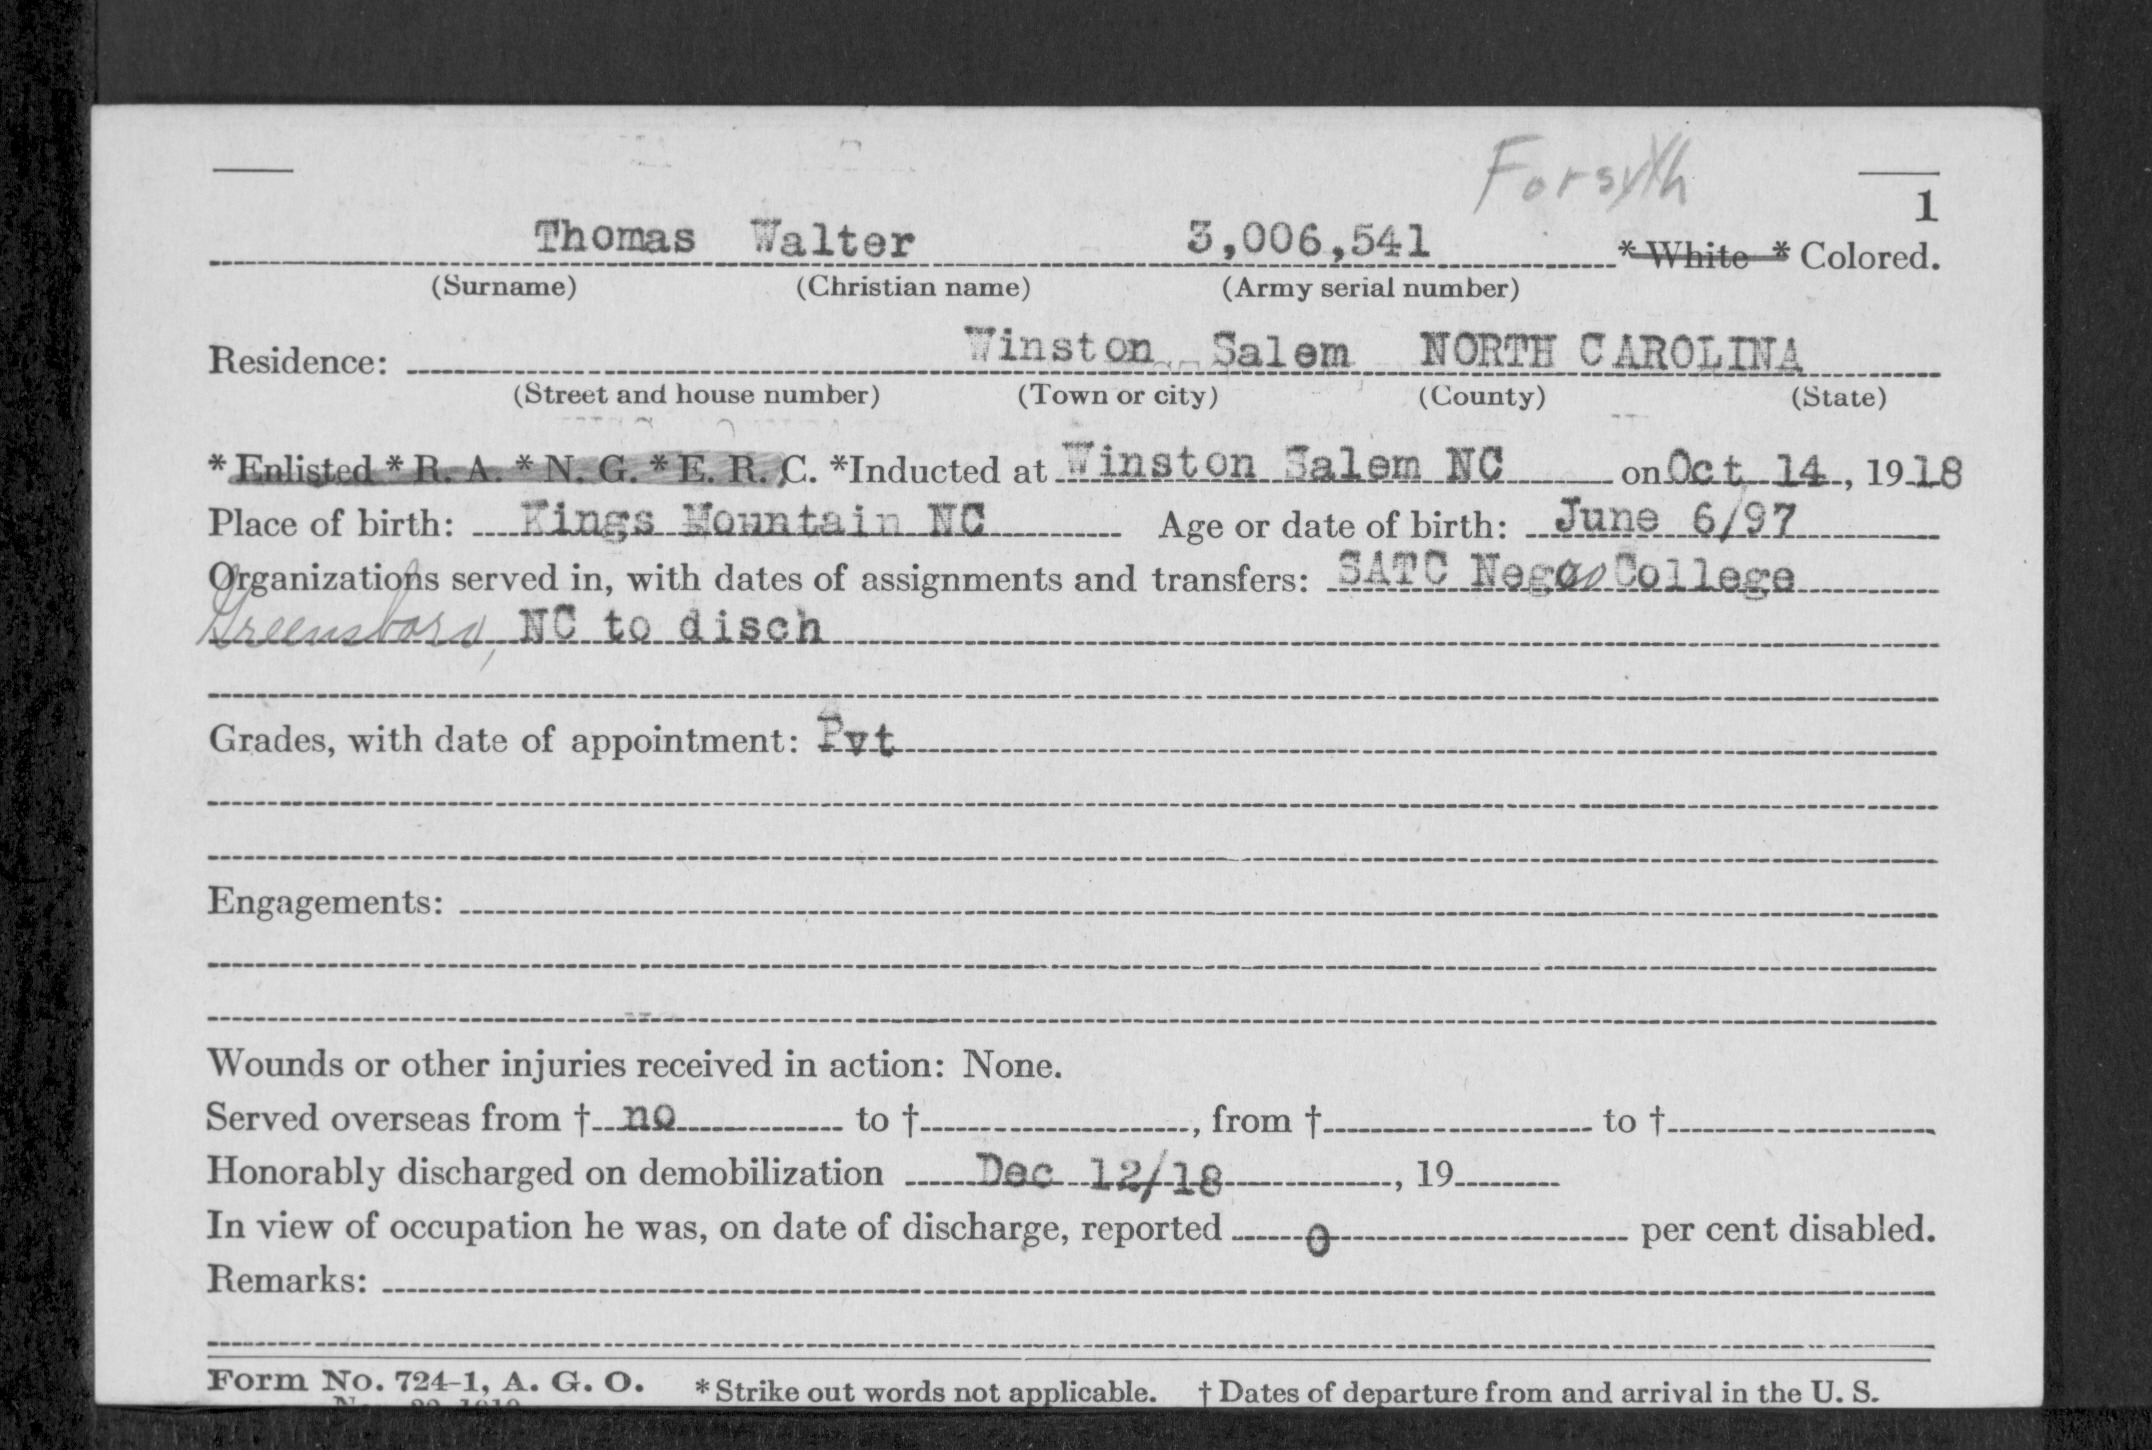 Forsyth
1
Thomas Walter 3,006,541 * White * Colored.
(Surname) (Christian name) (Army serial number)
Winston Salem NORTH CAROLINA
Residence:
(Street and house number) (Town or city) (County) (State)
* Enlisted * R. A. * N. G. * E. R. C. *Inducted at Winston Salem NC on Oct 14, 1918
Place of birth: Kings Mountain NC Age or date of birth: June 6/97
Organizations served in, with dates of assignments and transfers: SATC Negro College
Greensboro, NC to disch
Grades, with date of appointment: Pvt
Engagements:
Wounds or other injuries received in action: None.
Served overseas from † no to †, from † to †
Honorably discharged on demobilization Dec 12/18, 19
In view of occupation he was, on date of discharge, reported 0 per cent disabled.
Remarks:
Form No. 724-1, A. G. O. * Strike out words not applicable. † Dates of departure from and arrival in the U. S.